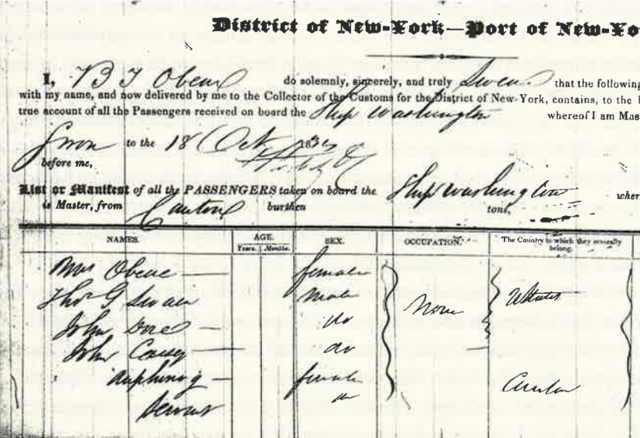 District of New-York—Port of New-Yo
I, B T Obear do solemnly, sincerely, and truly Swear that the following
with my name, and now delivered by me to the Collector of the Customs for the District of New-York, contains, to the
true account of all the Passengers received on board the Ship Washington whereof I am Mas
Sworn to the 18 Oct 183
before me,
List or Manifest of all the PASSENGERS taken on board the Ship Washington wher
is Master, from Canton burthen tons,
NAMES. AGE. SEX. OCCUPATION. The Country to which they severally belong.
Years. Months.
Mrs Obear — female
Thos G Swan male None
John — do
John Casey do
female Canton
Servant do